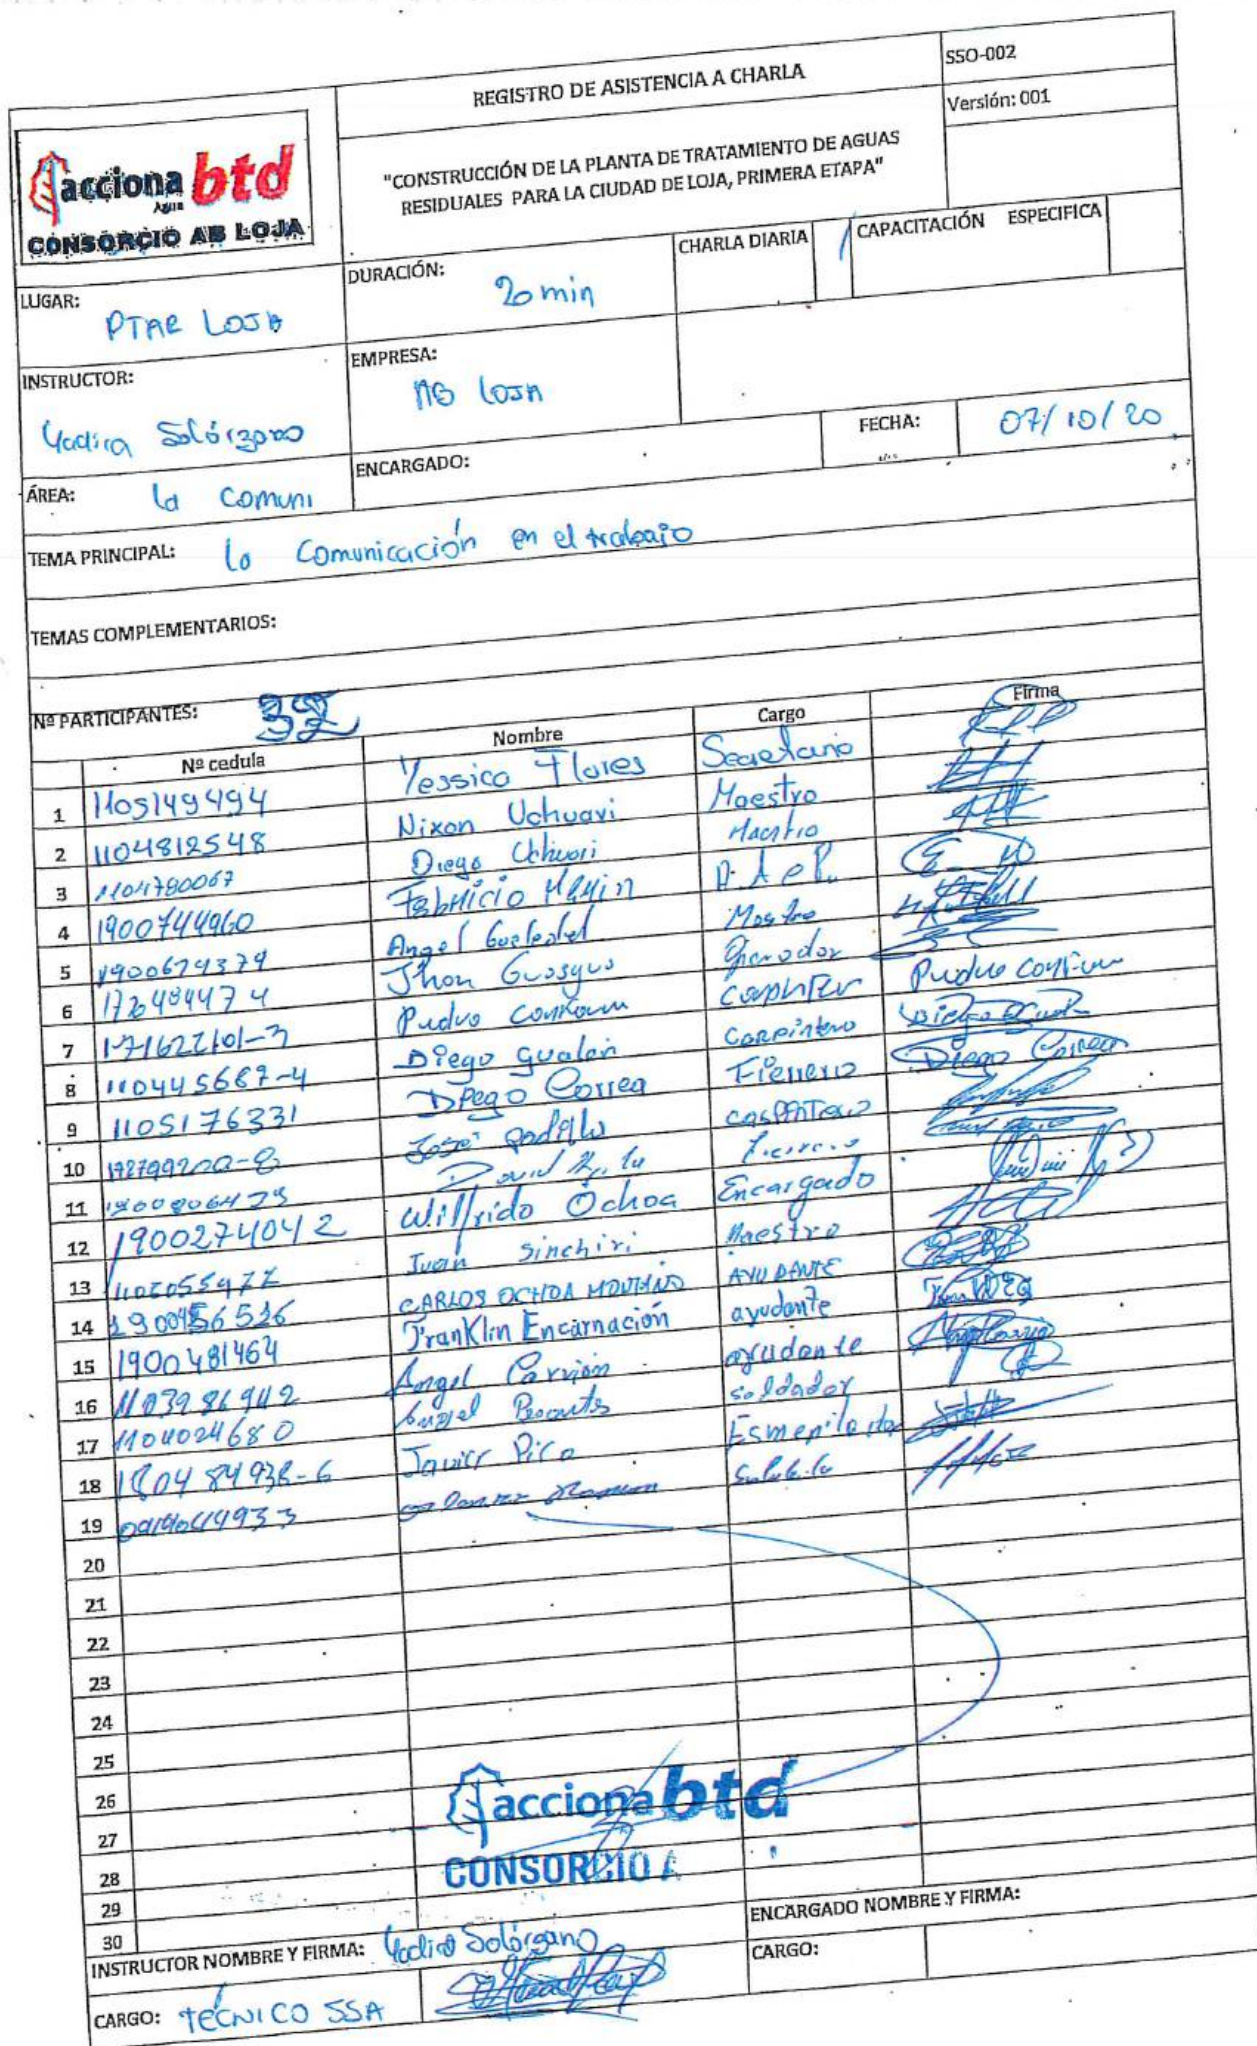 REGISTRO DE ASISTENCIA A CHARLA
SSO-002
Versión: 001
acciona btd
Agua
CONSORCIO AB LOJA
"CONSTRUCCIÓN DE LA PLANTA DE TRATAMIENTO DE AGUAS
RESIDUALES PARA LA CIUDAD DE LOJA, PRIMERA ETAPA"
LUGAR: PTAR LOJA
DURACIÓN: 20 min
CHARLA DIARIA /
CAPACITACIÓN ESPECIFICA
INSTRUCTOR: Yadira Solórzano
EMPRESA: AB LOJA
FECHA: 07/10/20
ÁREA: la comuni
ENCARGADO:
TEMA PRINCIPAL: la Comunicación en el trabajo
TEMAS COMPLEMENTARIOS:
Nº PARTICIPANTES: 32
Nº cedula Nombre Cargo Firma
1 1105149494 Yessica Flores Secretaria
2 1104812548 Nixon Uchuari Maestro
3 1104780067 Diego Uchuari Maestro
4 1900744960 Fabricio
5 1900679379 Angel
6 Jhon Guasgua
7 Carpintero
8 110445687-4 Diego Gualan Carpintero
9 1105176331 Diego Correa Fierrero Diego Correa
10 José Padilla
11 David
12 1900274042 Wilfrido Ochoa Encargado
13 Juan Sinchiri Maestro
14 1900456536 CARLOS OCHOA AYUDANTE
15 1900481464 Franklin Encarnación ayudante
16 1103986942 Angel Carrión ayudante
17 1104024680 Soldador
18 Javier Pico
19
20
21
22
23
24
25
26
27
28
29
30
acciona btd
CONSORCIO A
INSTRUCTOR NOMBRE Y FIRMA: Yadira Solórzano
ENCARGADO NOMBRE Y FIRMA:
CARGO: TÉCNICO SSA
CARGO: